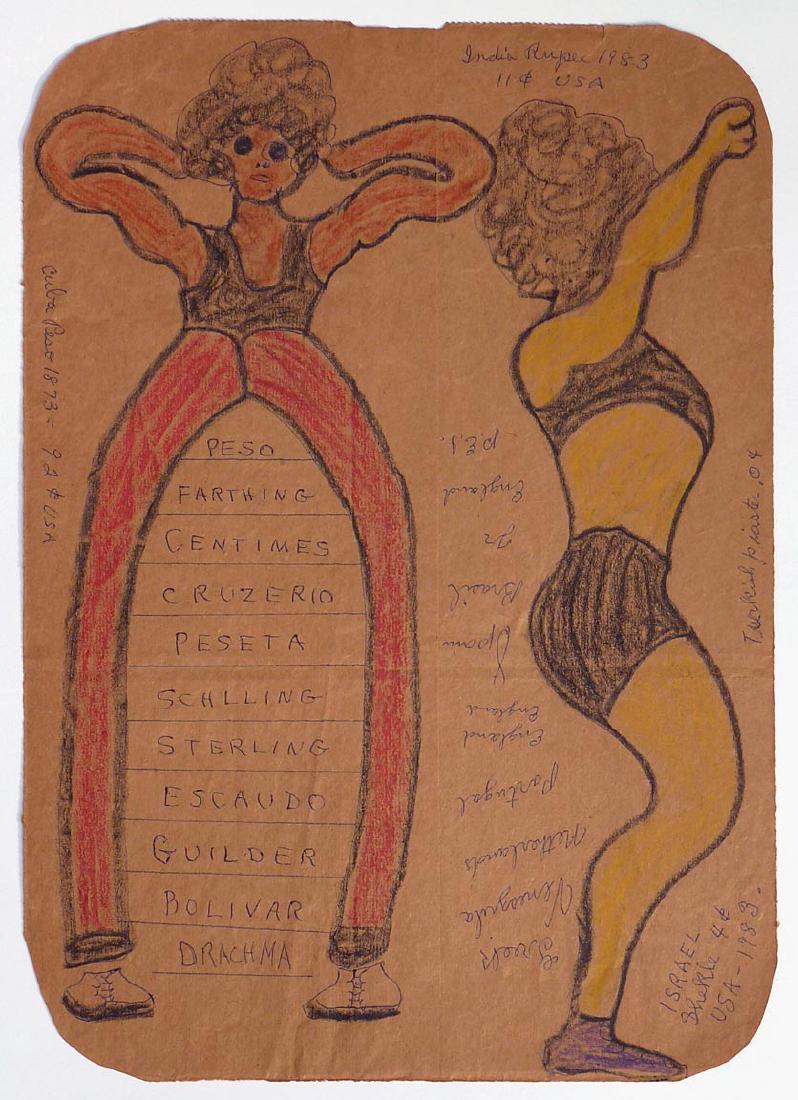 India Rupee 1983
11¢ USA
Cuba Peso 1873 - 92¢ USA
PESO
FARTHING
CENTIMES
CRUZERIO
PESETA
SCHLLING
STERLING
ESCAUDO
GUILDER
BOLIVAR
DRACHMA
P.E.I.
England
Fr
Brasil
Spain
England
England
Portugal
Netherlands
Venezuela
Greek
Turkish piaster .04
ISRAEL
Shekle 4¢
USA - 1983.